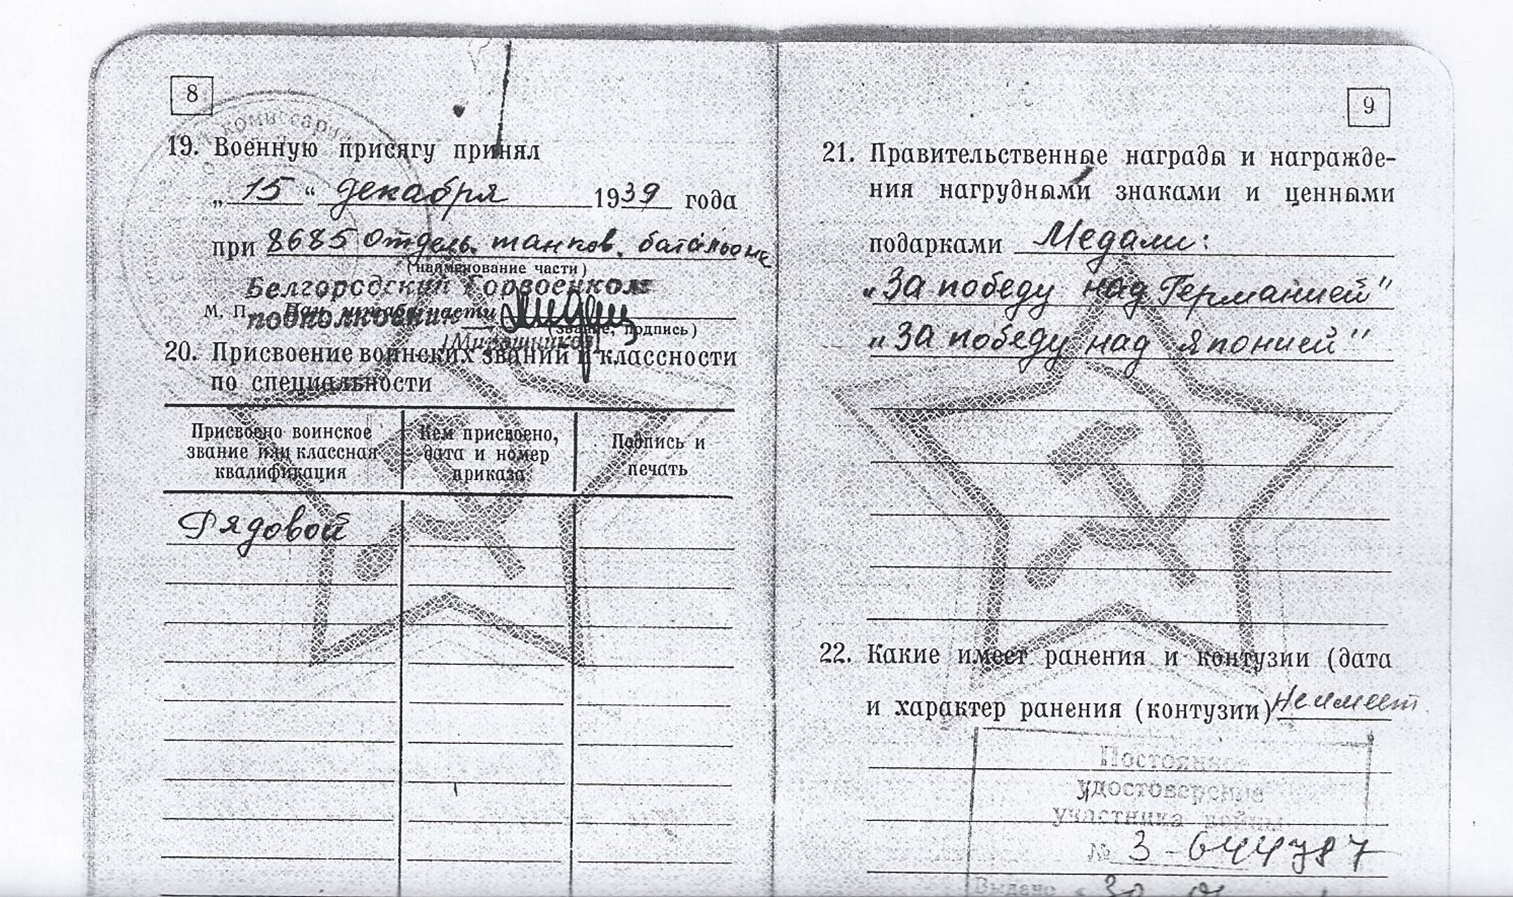 8
19. Военную присягу принял
„ 15 “ декабря 1939 года
при 8685 Отдель. танков. батальоне
(наименование части)
Белгородский Горвоенком
М. П. подполковник
(звание, подпись)
20. Присвоение воинских званий и классности
по специальности
Присвоено воинское звание или классная квалификация
Кем присвоено, дата и номер приказа
Подпись и печать
Рядовой
9
21. Правительственные награды и награжде-
ния нагрудными знаками и ценными
подарками Медали:
„За победу над Германией"
„За победу над Японией"
22. Какие имеет ранения и контузии (дата
и характер ранения (контузии) Не имеет
удостоверение
участника войны
№ 3-644787
Выдано « 30